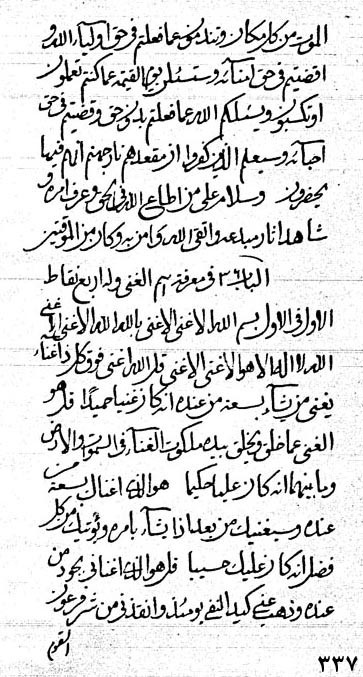 الموت من كل مكان وتندمون عما فعلتم في حق اولياء الله و
اقضيتم في حق امنائه وستسئلن يوم القيمة عما كنتم تعملون
او تكسبون ويسئلكم الله عما فعلتم بدون حق وقضيتم في حق
احبائه وسيعلم الذين كفروا ان مقعدهم نار جهنم انهم فيها
يحضرون وسلام على من اطاع الله في الحق وعرف امره و
شاهد اثار مبدعه واتقى الله وامن به وكان من الموقنين
الباب في معرفة اسم الغني وله اربع نقاط
الاول في الاول بسم الله الاغنى الاغنى بالله الله الاغنى الاغنى
الله لا اله الا هو الاغنى الاغنى قل الله اغنى فوق كل ذا غناء
يغني من يشاء بسعة من عنده انه كان غنيا حميدا قل هو
الغني عما خلق ويخلق بيده ملكوت الغناء في السموات والارض
وما بينهما انه كان عليما حكيما هو الذي اغناك بسعة من
عنده وسيغنيك من بعد اذا شاء بامره ويؤتيك من كل
فضل انه كان عليك حسيبا قل هو الذي اغناني بجود من
عنده وذهب عني كيد النفس يومئذ وانقذني من شر فرعون
القوم
٣٣٧